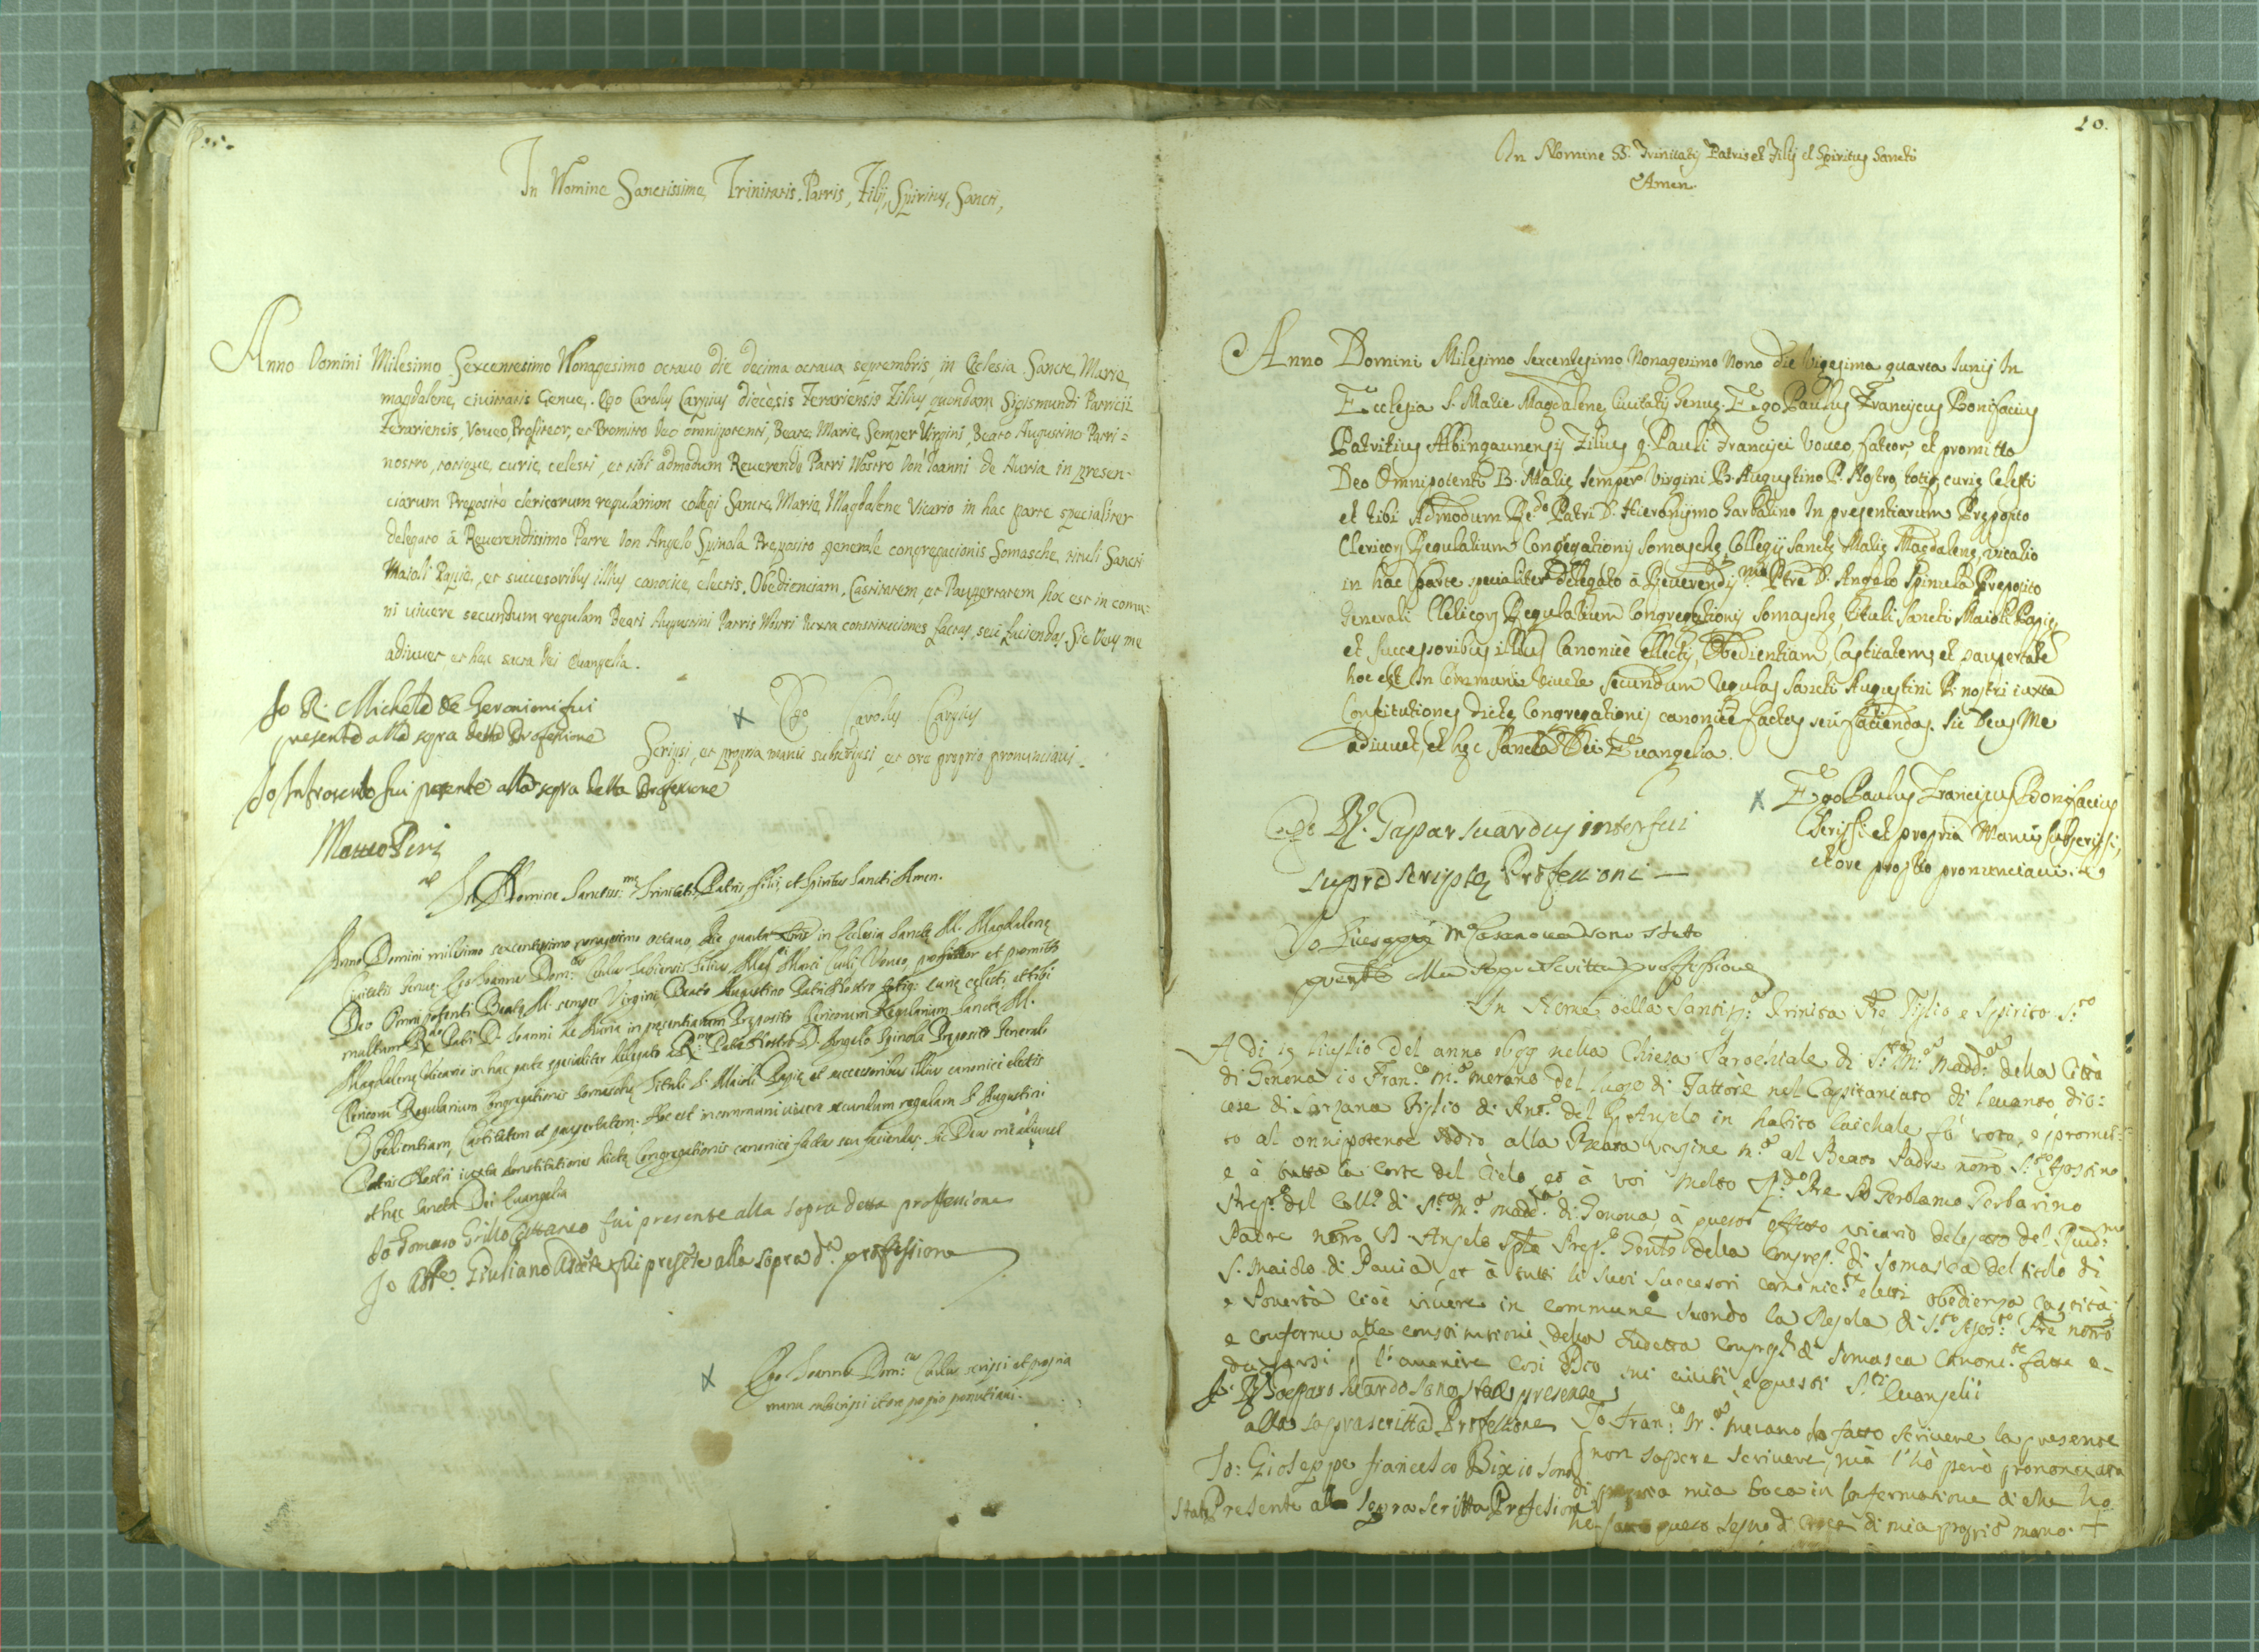 In Nomine Sanctissime, Trinitatis, Patris, Filij, Spiritus, Sancti,
Anno Domini Milesimo Sexcentesimo Nonagesimo octauo die decima octaua septembris, in Eclesia Sancte, Marie,
magdalene, ciuitatis Genue,. Ego Carolus Carpius diècesis Ferariensis Filius quondam Sigismundi Patricii
Ferariensis, Voueo, Profiteor, et Promitto Deo omnipotenti, Beate, Marie, Semper Virgini, Beato Augustino Patri=
nostro, totique, curie, celesti, et tibi admodum Reuerendo Patri Nostro Don Ioanni de Auria in presen-
ciarum Preposito clericorum regularium collegi Sancte, Marie, Magdalene Vicario in hac parte specialiter
delegato à Reuerendisimo Patre Don Angelo Spinola Preposito generale congregacionis Somasche, tituli Sancti
Maioli Papie,, et succesoribus illius canonice, electis. Obedienciam, Castitatem, et Paupertatem, hoc est in comu=
ni uiuere secundum regulam Beati Augustini Patris Nostri Iuxta constituciones factas, seu faciendas, Sic Deus me
adiuuet et hec sacra Dei Euangelia.
Io R. Michele de Geronimi fui
presente alla sopra detta Professione
x Ego Carolus Carpius
Scripsi, et propria manu subscripsi, et ore proprio pronunciaui.
fui presente alla sopra detta Professione
In Nomine Sanctiss:me Trinitatis, Patris, Filii, et Spiritus Sancti Amen.
Anno Domini milesimo sexcentesimo nonagesimo octauo, die quarta in Eclesia Sanctę M. Magdalenę
Ciuitatis Genuę Ego Ioannes Dom:cus Filius Marci Voueo, profiteor et promitto
Deo Omnipotenti Beatę M. semper Virgini Beato Augustino Patri Nostro totiq: curię celesti, et tibi
multum Rdo Patri D. Ioanni de Auria in pręsentiarum Pręposito Clericorum Regularium Sanctę M.
Magdalenę Vicario in hac parte specialiter delegato à R:mo Patre Nostro D. Angelo Spinola Pręposito Generali
Clericorum Regularium Congregationis Somaschę Tituli S. Maioli Papię et successoribus illius canonici electis
Obedientiam, Castitatem et paupertatem. Hoc est in communi uiuere secundum regulam S. Augustini
Patris Nostri iuxta Constitutiones dictę Congregationis canonici factas seu faciendas. Sic Deus me adiuuet
et hęc Sancta Dei Euangelia
Io Tomaso Grillo Cattaneo fui presente alla sopra detta professione
Io Giuliano fui presẽte alla sopra d.a professione
x Ego Ioannes Dom:cus scripsi et propria
manu subscripsi et ore propio
10.
In Nomine SS. Trinitatis Patris et Filij et Spiritus Sancti
Amen.
Anno Domini Milesimo sexcentesimo Nonagesimo Nono die Vigesima quarta Iunij In
Ecclesia S. Marie Magdalene Ciuitatis Genuę. Ego Paulus Franciscus Bonifacius
Patritius Albingaunensis Filius q. Pauli Francisci Voueo, fateor, et promitto
Deo Omnipotenti B. Marię semper Virgini B. Augustino P. Nostro, totiq, curię Celesti
et tibi Admodum Re:do Patri D. Hieronijmo Garbarino In presentiarum Pręposito
Clericorum Regularium Congregationis Somaschę, Collegij Sanctę Marię Magdalenę, vicario
in hac parte specialiter dellegato à Reuerendis:mo Ptre D. Angelo Spinula Preposito
Generali Clericorum Regularium Congregationis Somaschę Tituli Sancti Maioli Papię
et successoribus illius Canonicè ellectis, Obedientiam, Castitatem, et paupertatẽ
hoc est In Communi Viuere secundum Regulas Sancti Augustini P. nostri iuxta
Constitutiones dictę Congregationis canonicè factas seu faciendas. Sic Deus Me
adiuuet, et hęc Sancta Dei Euangelia.
x Ego Paulus Franciscus Bonifacius
Scripsi et propria Manu subscripsi,
et ore proprio pronunciaui.
Ego D. Gaspar Suardus interfui
supra scriptę Professioni —
Io Giuseppe M.a Casanoua sono stato
presente alla sopra scritta professione
In Nome della Santiss:a Trinita Pre Figlio e Spirito S:to
A di 19 Luglio del anno 1699 nella Chiesa Parochiale di S:ta M:a Madd:a della Città
di Genoua io Fran:co M:a Merano del luogo di Fattore nel Cappitaniato di leuanto dio:
cese di Sarzana Figlio di Ant:o del q. Angelo in habito laichale fò voto, e promet:
to al onnipotente Iddio alla Beata Vergine M:a al Beato Padre nõro S:to Agostino
e à tutta la Corte del Cielo et à voi Molto R:do Pre D. Gerolamo Gerbarino
Prep:to del Coll:o di S:ta M:a Mad:a di Genoua, à questo effetto vicario delegato del Reud:mo
Padre nõro D. Angelo Spla Prep:to Genle della Congreg:e di Somasca del titolo di
S. Maiolo di Pauia, et à tutti li suoi succesori canonic:te eletti obedienza castità
e Pouertà cioè viuere in commune secondo la Regola di S:to Agos:to Pre nõro
e conforme alle constitutioni della sudetta Congreg:e di Somasca Canonic:te fatte e-
da farsi p l'auenire Così Dio mi aiuti e questi S:ti Euangelii
D. Gasparo Suardo sono stato presente
alla soprascritta Professione
Io Fran:co M:a Merano ho fatto scriuere la presente
non sapere scriuere, mà l'hò però prononciata
di propria mia boca in confermatione di che ho
fatto questo segno di Croce di mia propria mano. +
Io: Gioseppe Francesco Bixio sono
stato Presente alla sopra scritta Profesione